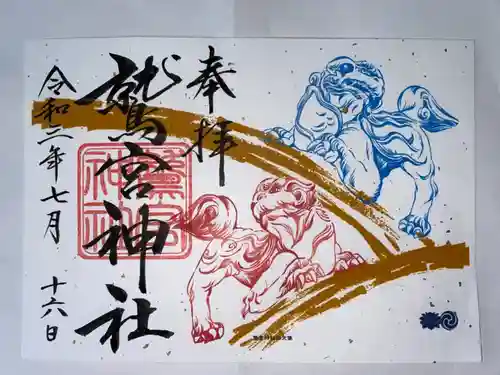 奉拝
鷲宮神社
令和二年七月
十六日
鷲宮
神社